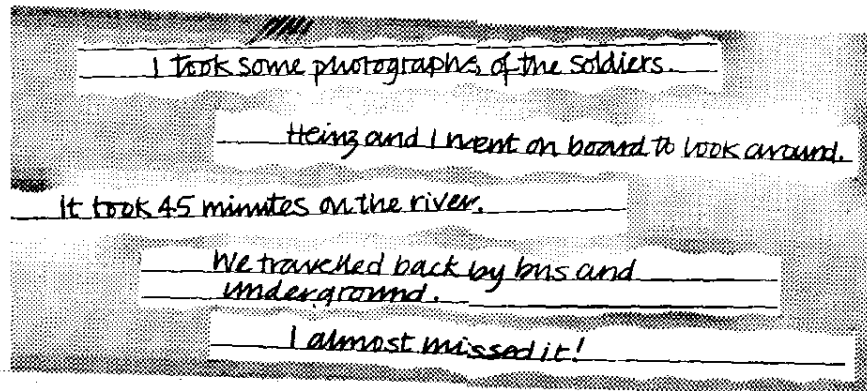 I took some photographs of the soldiers.
Heinz and I went on board to look around.
It took 45 minutes on the river.
We travelled back by bus and
underground.
I almost missed it!